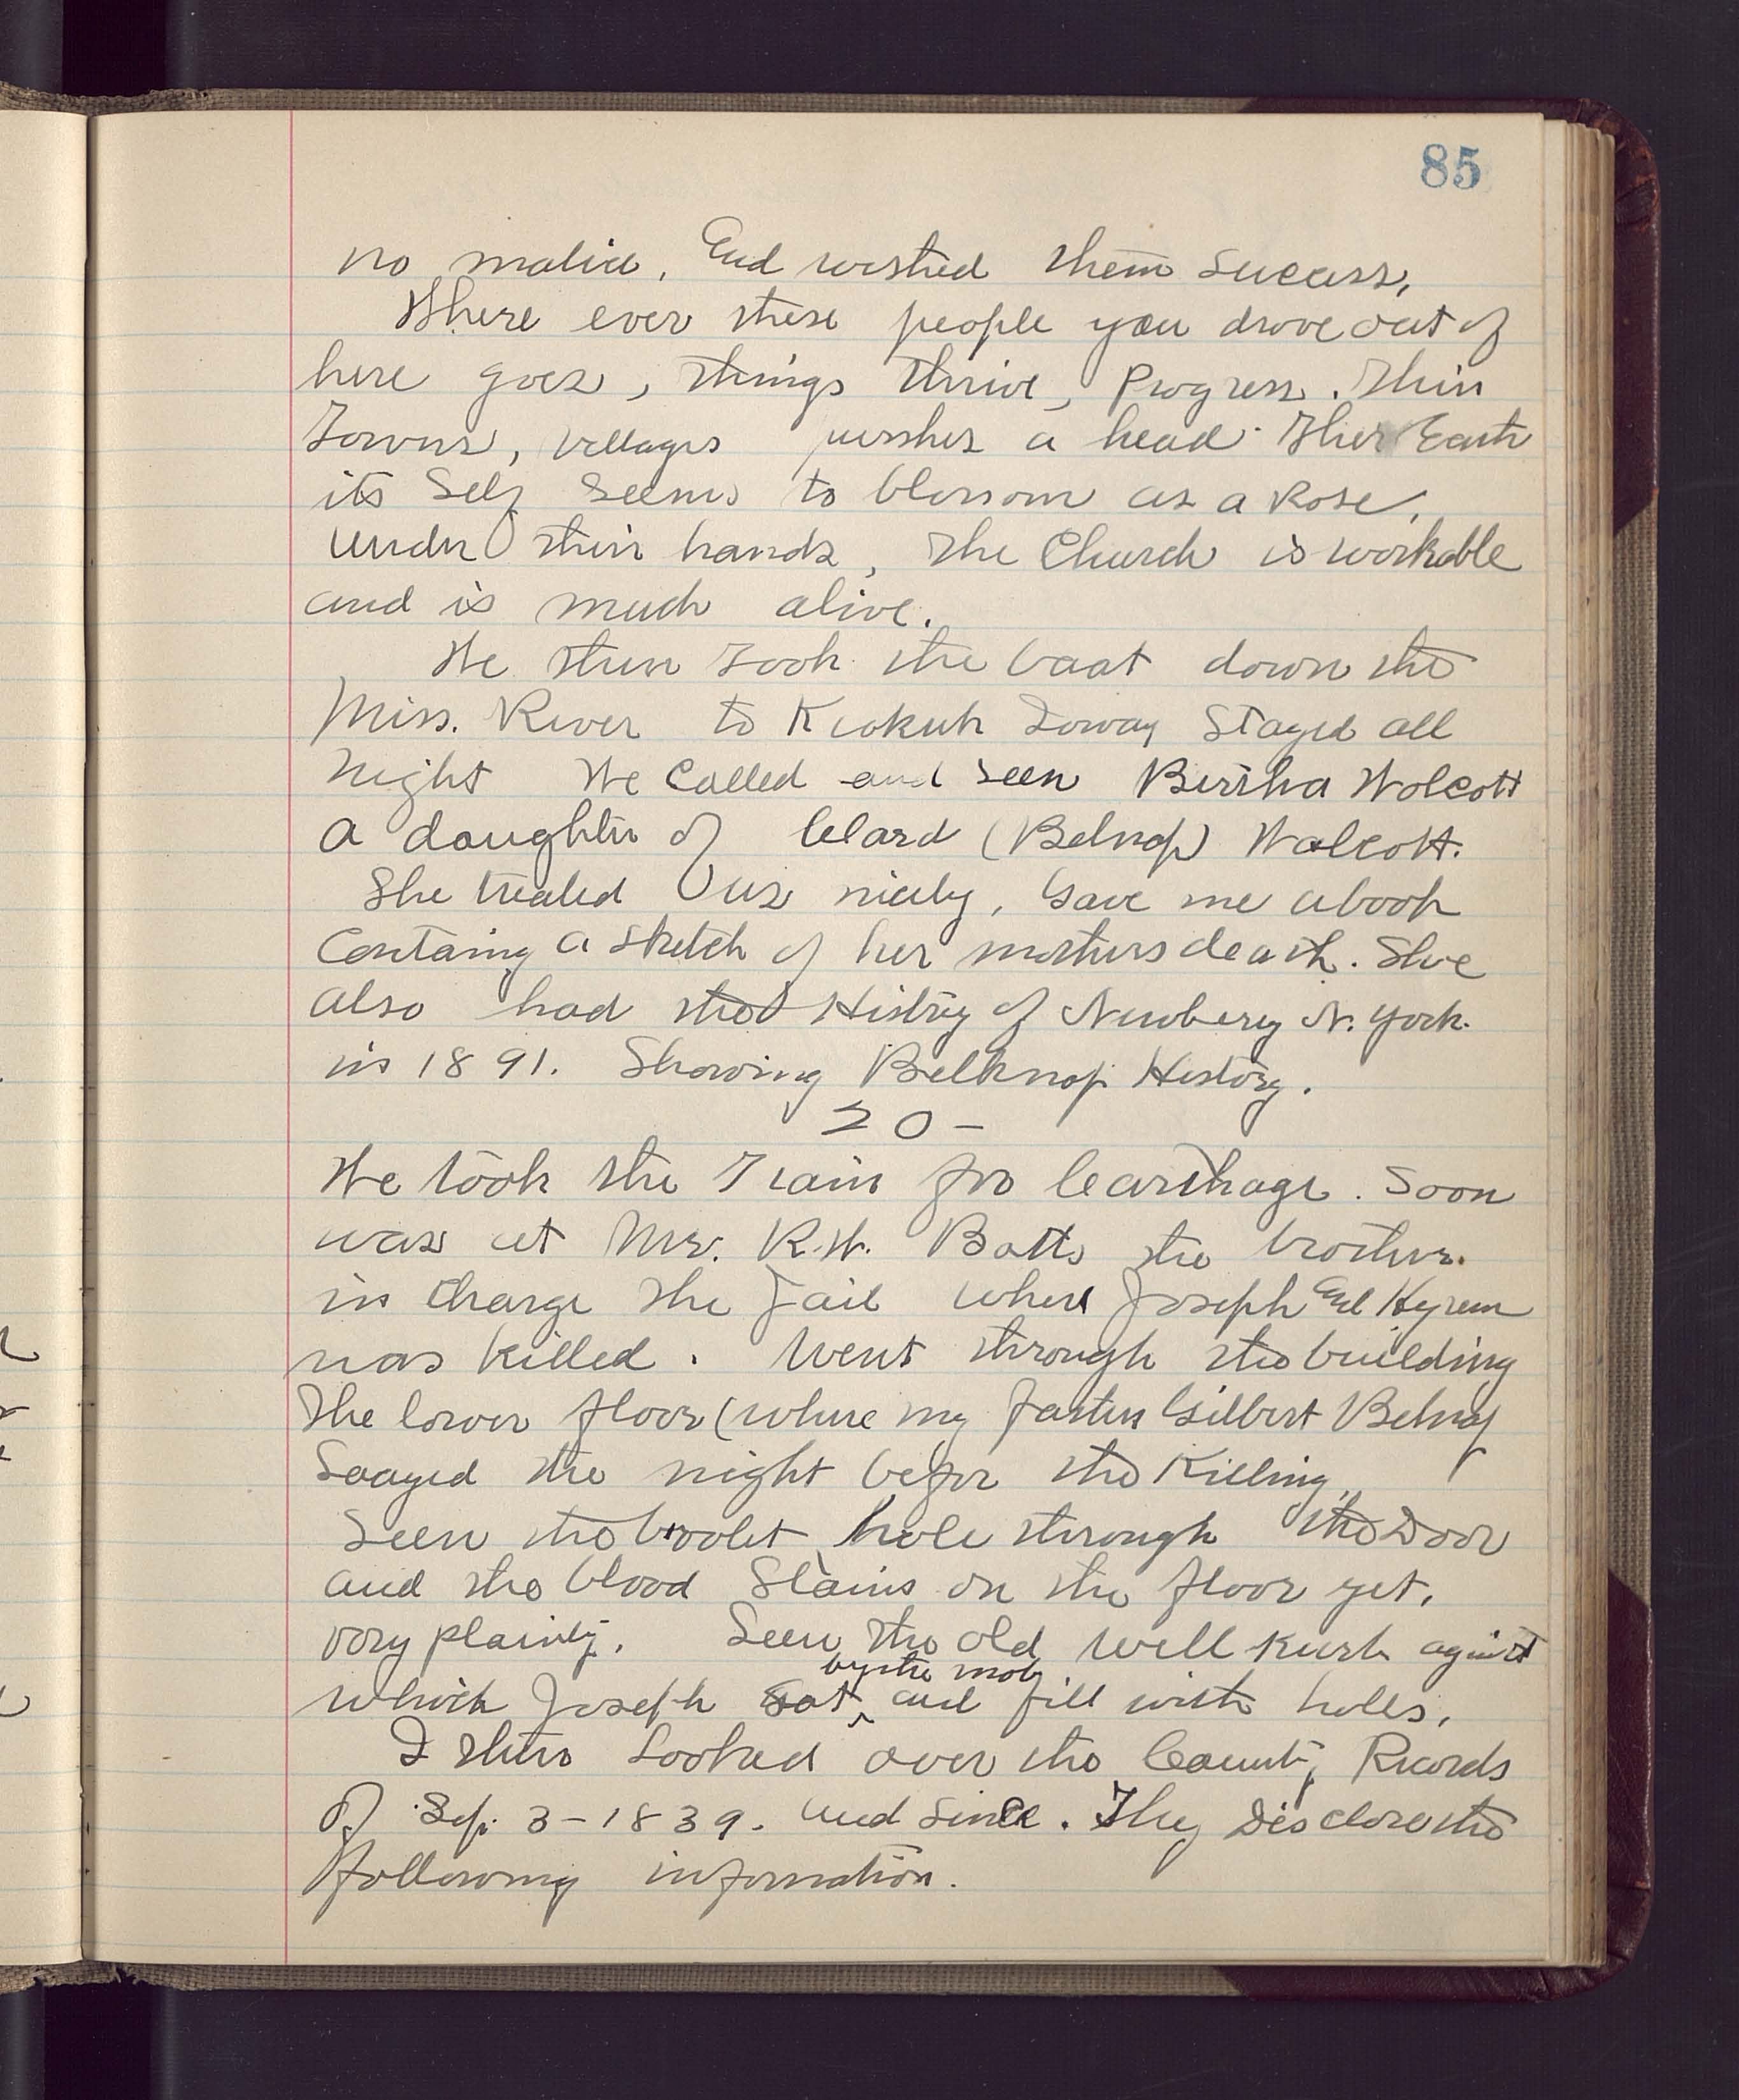 85
no malice. End wished them success,
Where ever these people you drove out of
here goes, things thrive, Progress. Thier
Towns, Villages pushes a head. Ther Earth
its Self Seems to blossom as a Rose.
under thier hands, The Church is workable
and is much alive.
We then Took the boat down the
Miss. River to Keokuk Ioway Stayed all
night We Called and seen Bertha Wolcott
a daughter of Clard (Belnap) Walcott.
She treated Us nicely, Gave me a book
Containg a sketch of her mothers death. She
also had the History of Newberg N. York.
in 1891. Showing Belknap History.
20 -
We took the Train for Carthage. Soon
was at Mr. R.W. Batts the brother.
in Charge The Jail where Joseph End Hyrem
was killed. Went through the building
The lower floor (where my father Gilbert Belnap
Saayed the night befor the Killing,
Seen the boolet hole through the Door
and the blood Stains on the floor yet,
very plainly. Seen the old well Kurb against
by the mob
which Joseph Sat ^ and fill with holes.
I then Looked over the County Records
Of Sep. 3 - 1839. and Since. They Disclose the
following information.